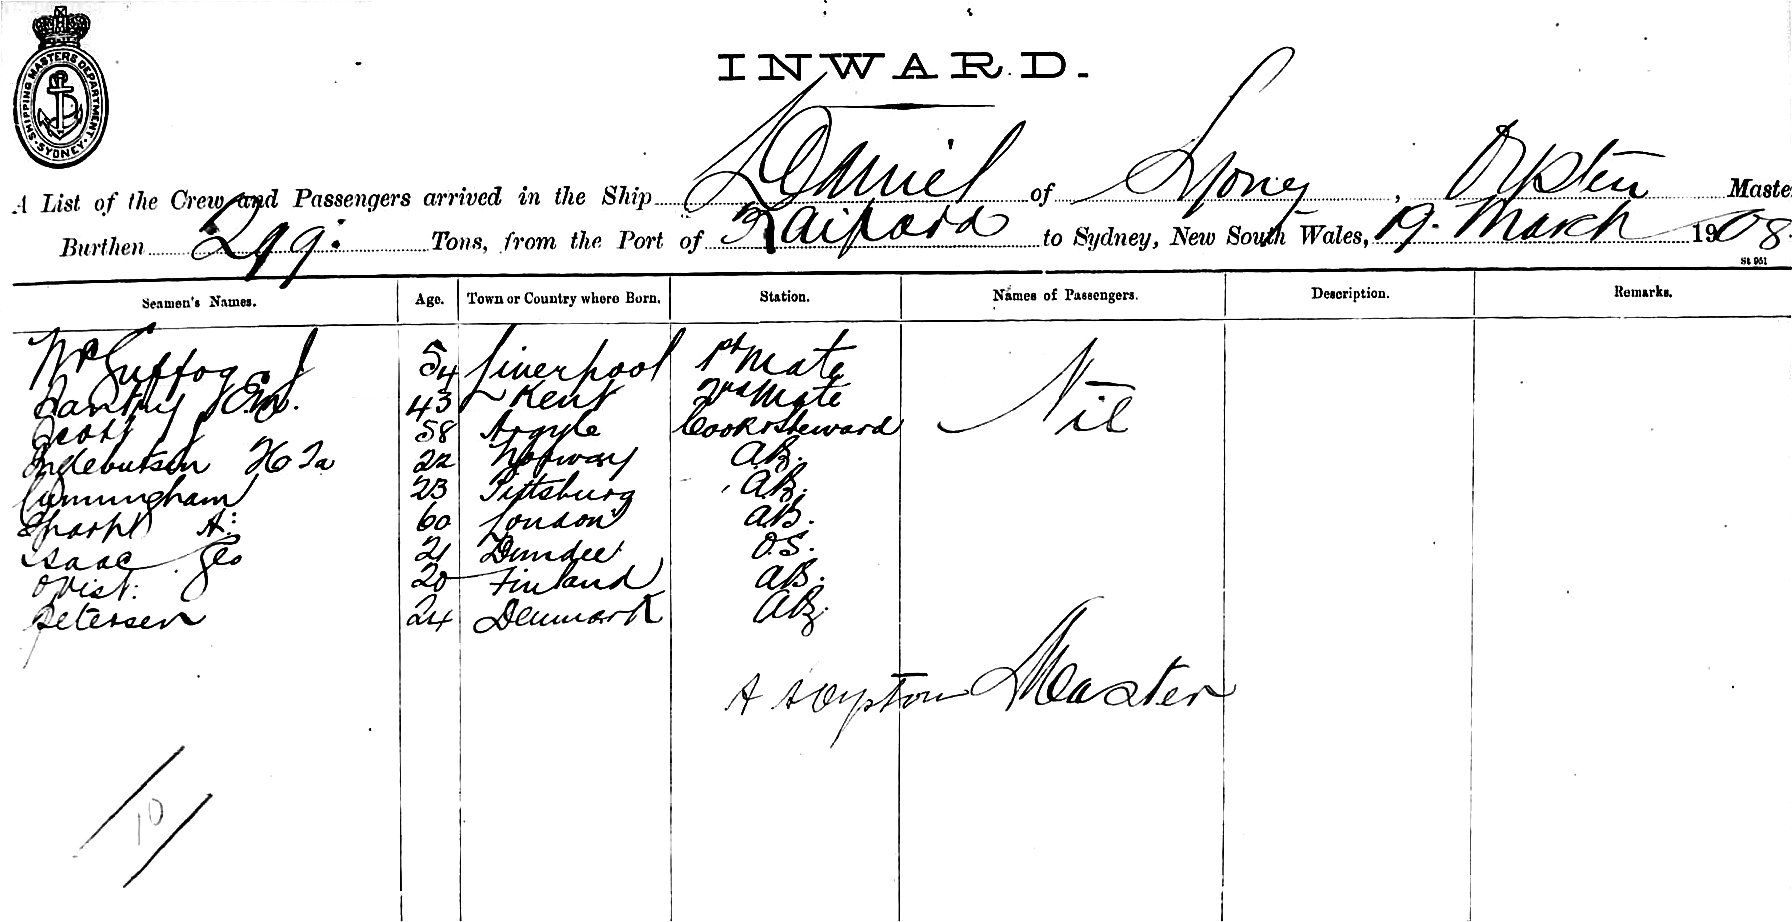 SHIPPING MASTERS DEPARTMENT. SYDNEY.
INWARD.
A List of the Crew and Passengers arrived in the Ship Daniel of Sydney, Master
Burthen 299. Tons, from the Port of Kaipara to Sydney, New South Wales, 19. March 1908.
St 951
Seamen's Names. Age. Town or Country where Born. Station. Names of Passengers. Description. Remarks.
McGuffog J 54 Liverpool 1st Mate Nil
43 Kent 2nd Mate
Scott J 58 Argyle Cook & Steward
22 Norway AB.
Cunningham 23 Pittsburg AB.
Sharpe A: 60 London AB.
Isaac Geo 21 Dundee O.S.
Qvist: 20 Finland AB.
Petersen 24 Denmark AB.
A Master
10